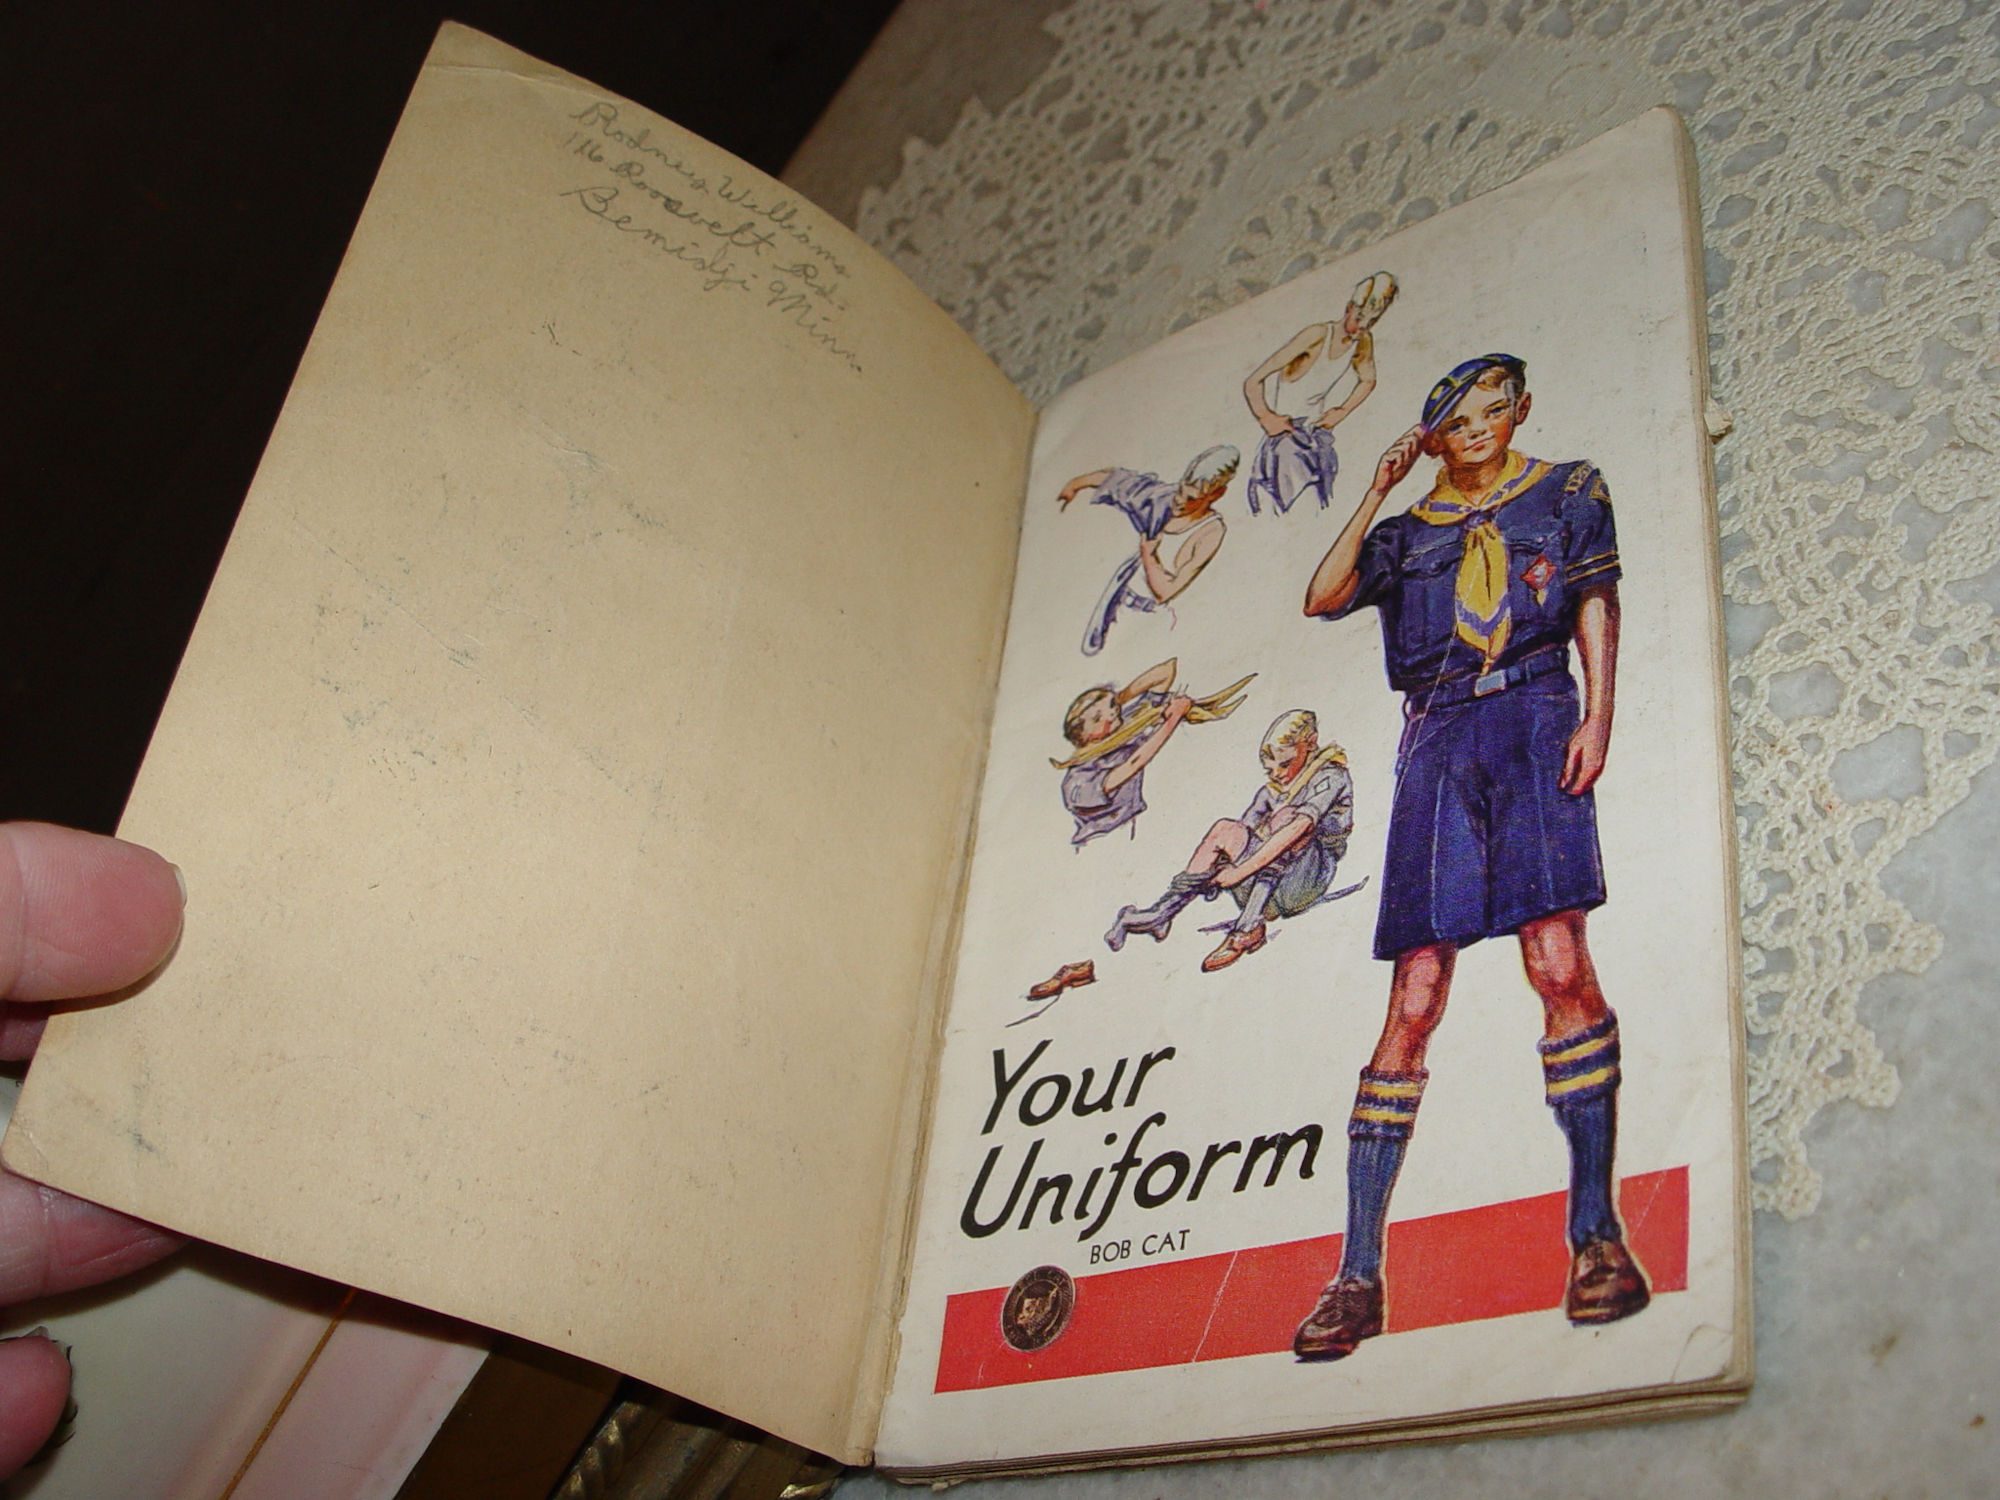 Rodney Williams
116 Roosvelt Rd.
Bemidji Minn.
Your
Uniform
BOB CAT